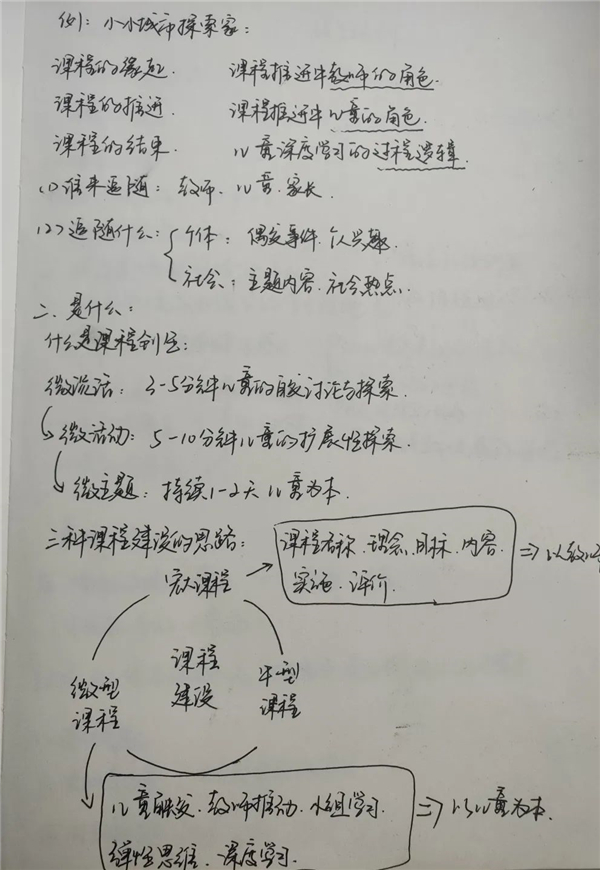 例：小小城市探索家：
课程的缘起. 课程推进中教师的角色.
课程的推进 课程推进中儿童的角色.
课程的结束. 儿童深度学习的过程
(1)谁来追随：教师、儿童、家长
(2)追随什么：
个体：偶发事件、个人兴趣.
社会：主题内容、社会热点.
二、是什么：
什么是课程创生：
微说话：3-5分钟儿童的自发讨论与探索.
微活动：5-10分钟儿童的扩展性探索.
微主题：持续1-2天儿童为本.
三种课程建设的思路：
课程名称、理念、目标、内容、
实施、评价.
⇒以教师
宏大课程
课程
建设
微型
课程
中型
课程
儿童触发、教师推动、小组学习
弹性思维、深度学习.
⇒以儿童为本.